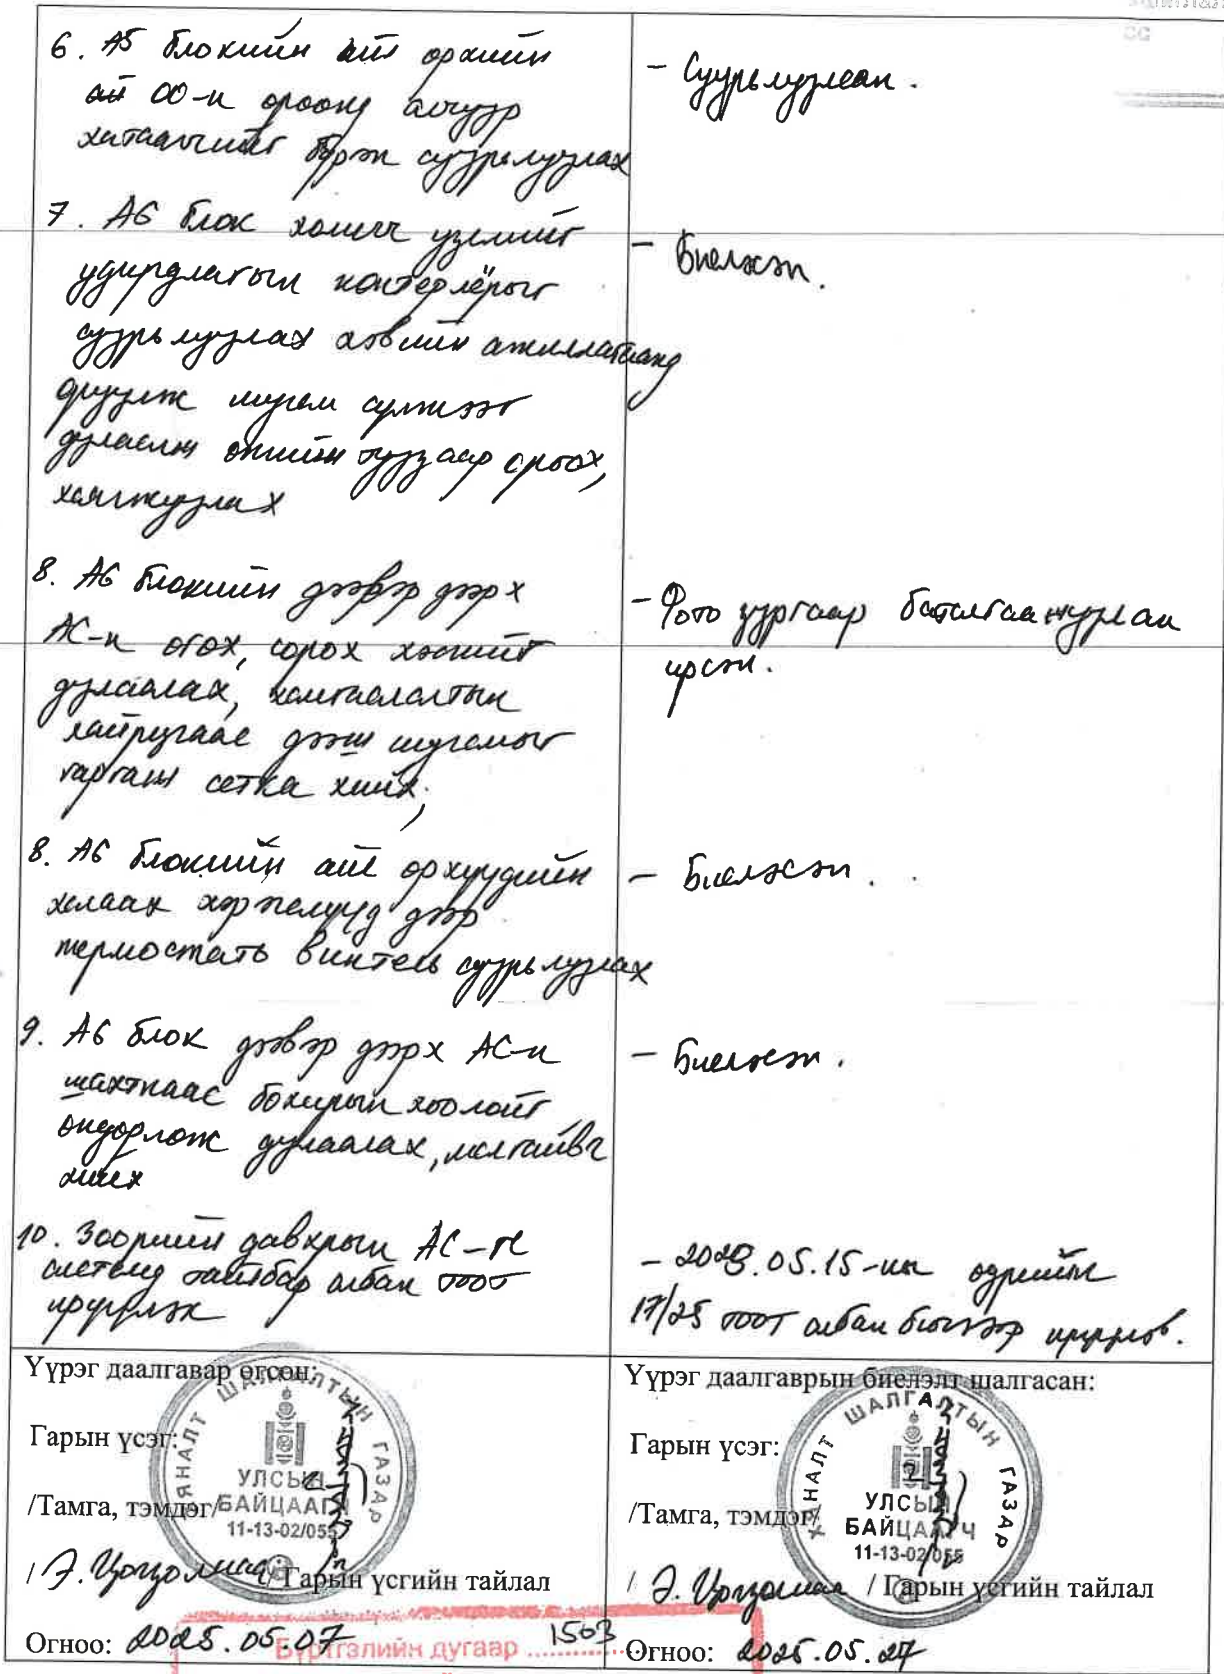 6. А5 блокийн айл өрхийн
ай ОО-н өрөөнд алчуур
хатаагчийг бүрэн суурьлуулах
- Суурьлуулсан.
7. А6 блок холигч узелийг
удирдлагын контерлёрыг
суурьлуулах хэвийн ажиллагаанд
оруулж шугам сүлжээг
дулаалгын өнгийн туузаар ороох,
хаягжуулах
- Биелэсэн.
8. А6 блокийн дээвэр дээрх
АС-н өгөх, сорох хэсгийг
дулаалах, хамгаалалтын
хайрцгаас дээш шугамыг
гаргаж сетка хийх;
- Фото зургаар баталгаажуулан
ирсэн.
8. А6 блокийн айл өрхүүдийн
халаах хэрэгслүүд дээр
термостать винтель суурьлуулах
- Биелэсэн.
9. А6 блок дээвэр дээрх АС-н
шахтнаас бохирын хоолойг
өндөрлөж дулаалах, малгайвч
хийх
- Биелэсэн.
10. Зоорийн давхрын АС-н
системд тайлбар албан тоот
ирүүлэх
- 2025.05.15-ны өдрийн
17/25 тоот албан бичгээр ирүүлэв.
Үүрэг даалгавар өгсөн:
Гарын үсэг:
/Тамга, тэмдэг/
/ Э. Цогзолмаа / Гарын үсгийн тайлал
Огноо: 2025.05.07
ХЯНАЛТ ШАЛГАЛТЫН ГАЗАР
УЛСЫН
БАЙЦААГЧ
11-13-02/055
Үүрэг даалгаврын биелэлт шалгасан:
Гарын үсэг:
/Тамга, тэмдэг/
/ Э. Цогзолмаа / Гарын үсгийн тайлал
Огноо: 2025.05.27
ХЯНАЛТ ШАЛГАЛТЫН ГАЗАР
УЛСЫН
БАЙЦААГЧ
11-13-02/055
Бүртгэлийн дугаар 1503